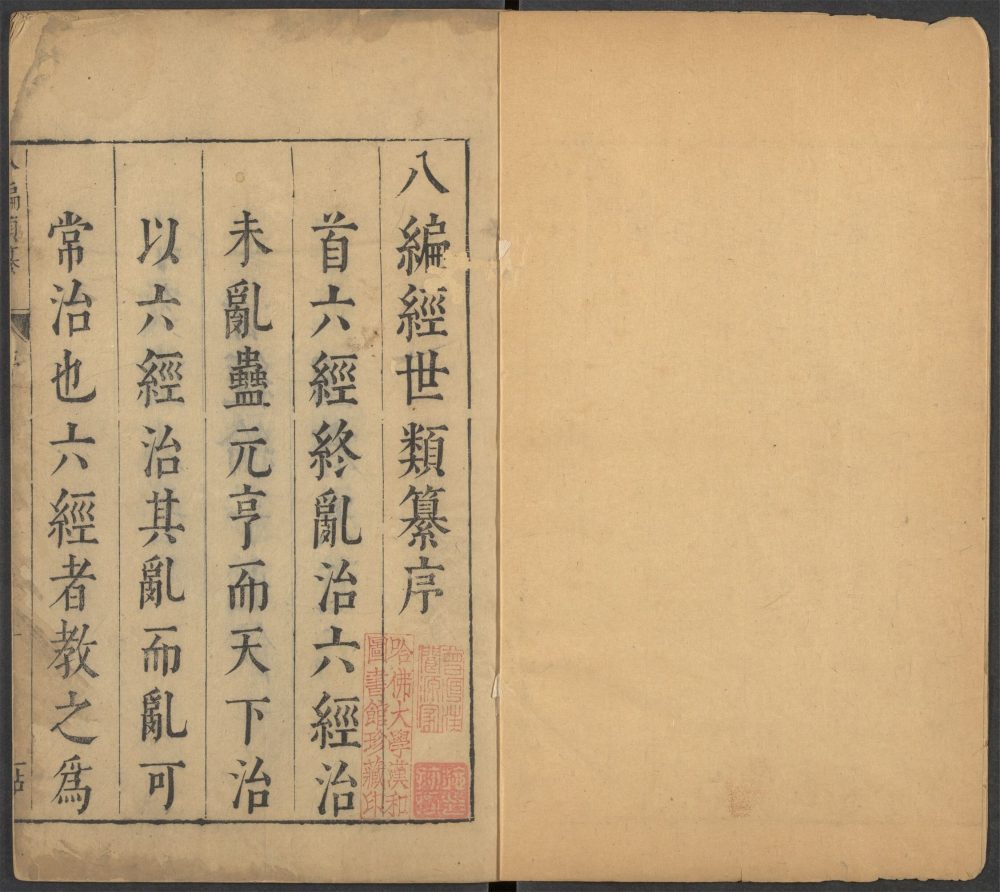 八編經世類纂序
首六經終亂治六經治
未亂蠱元亨而天下治
以六經治其亂而亂可
常治也六經者教之爲
哈佛大學漢和
圖書館珍藏印
編類纂